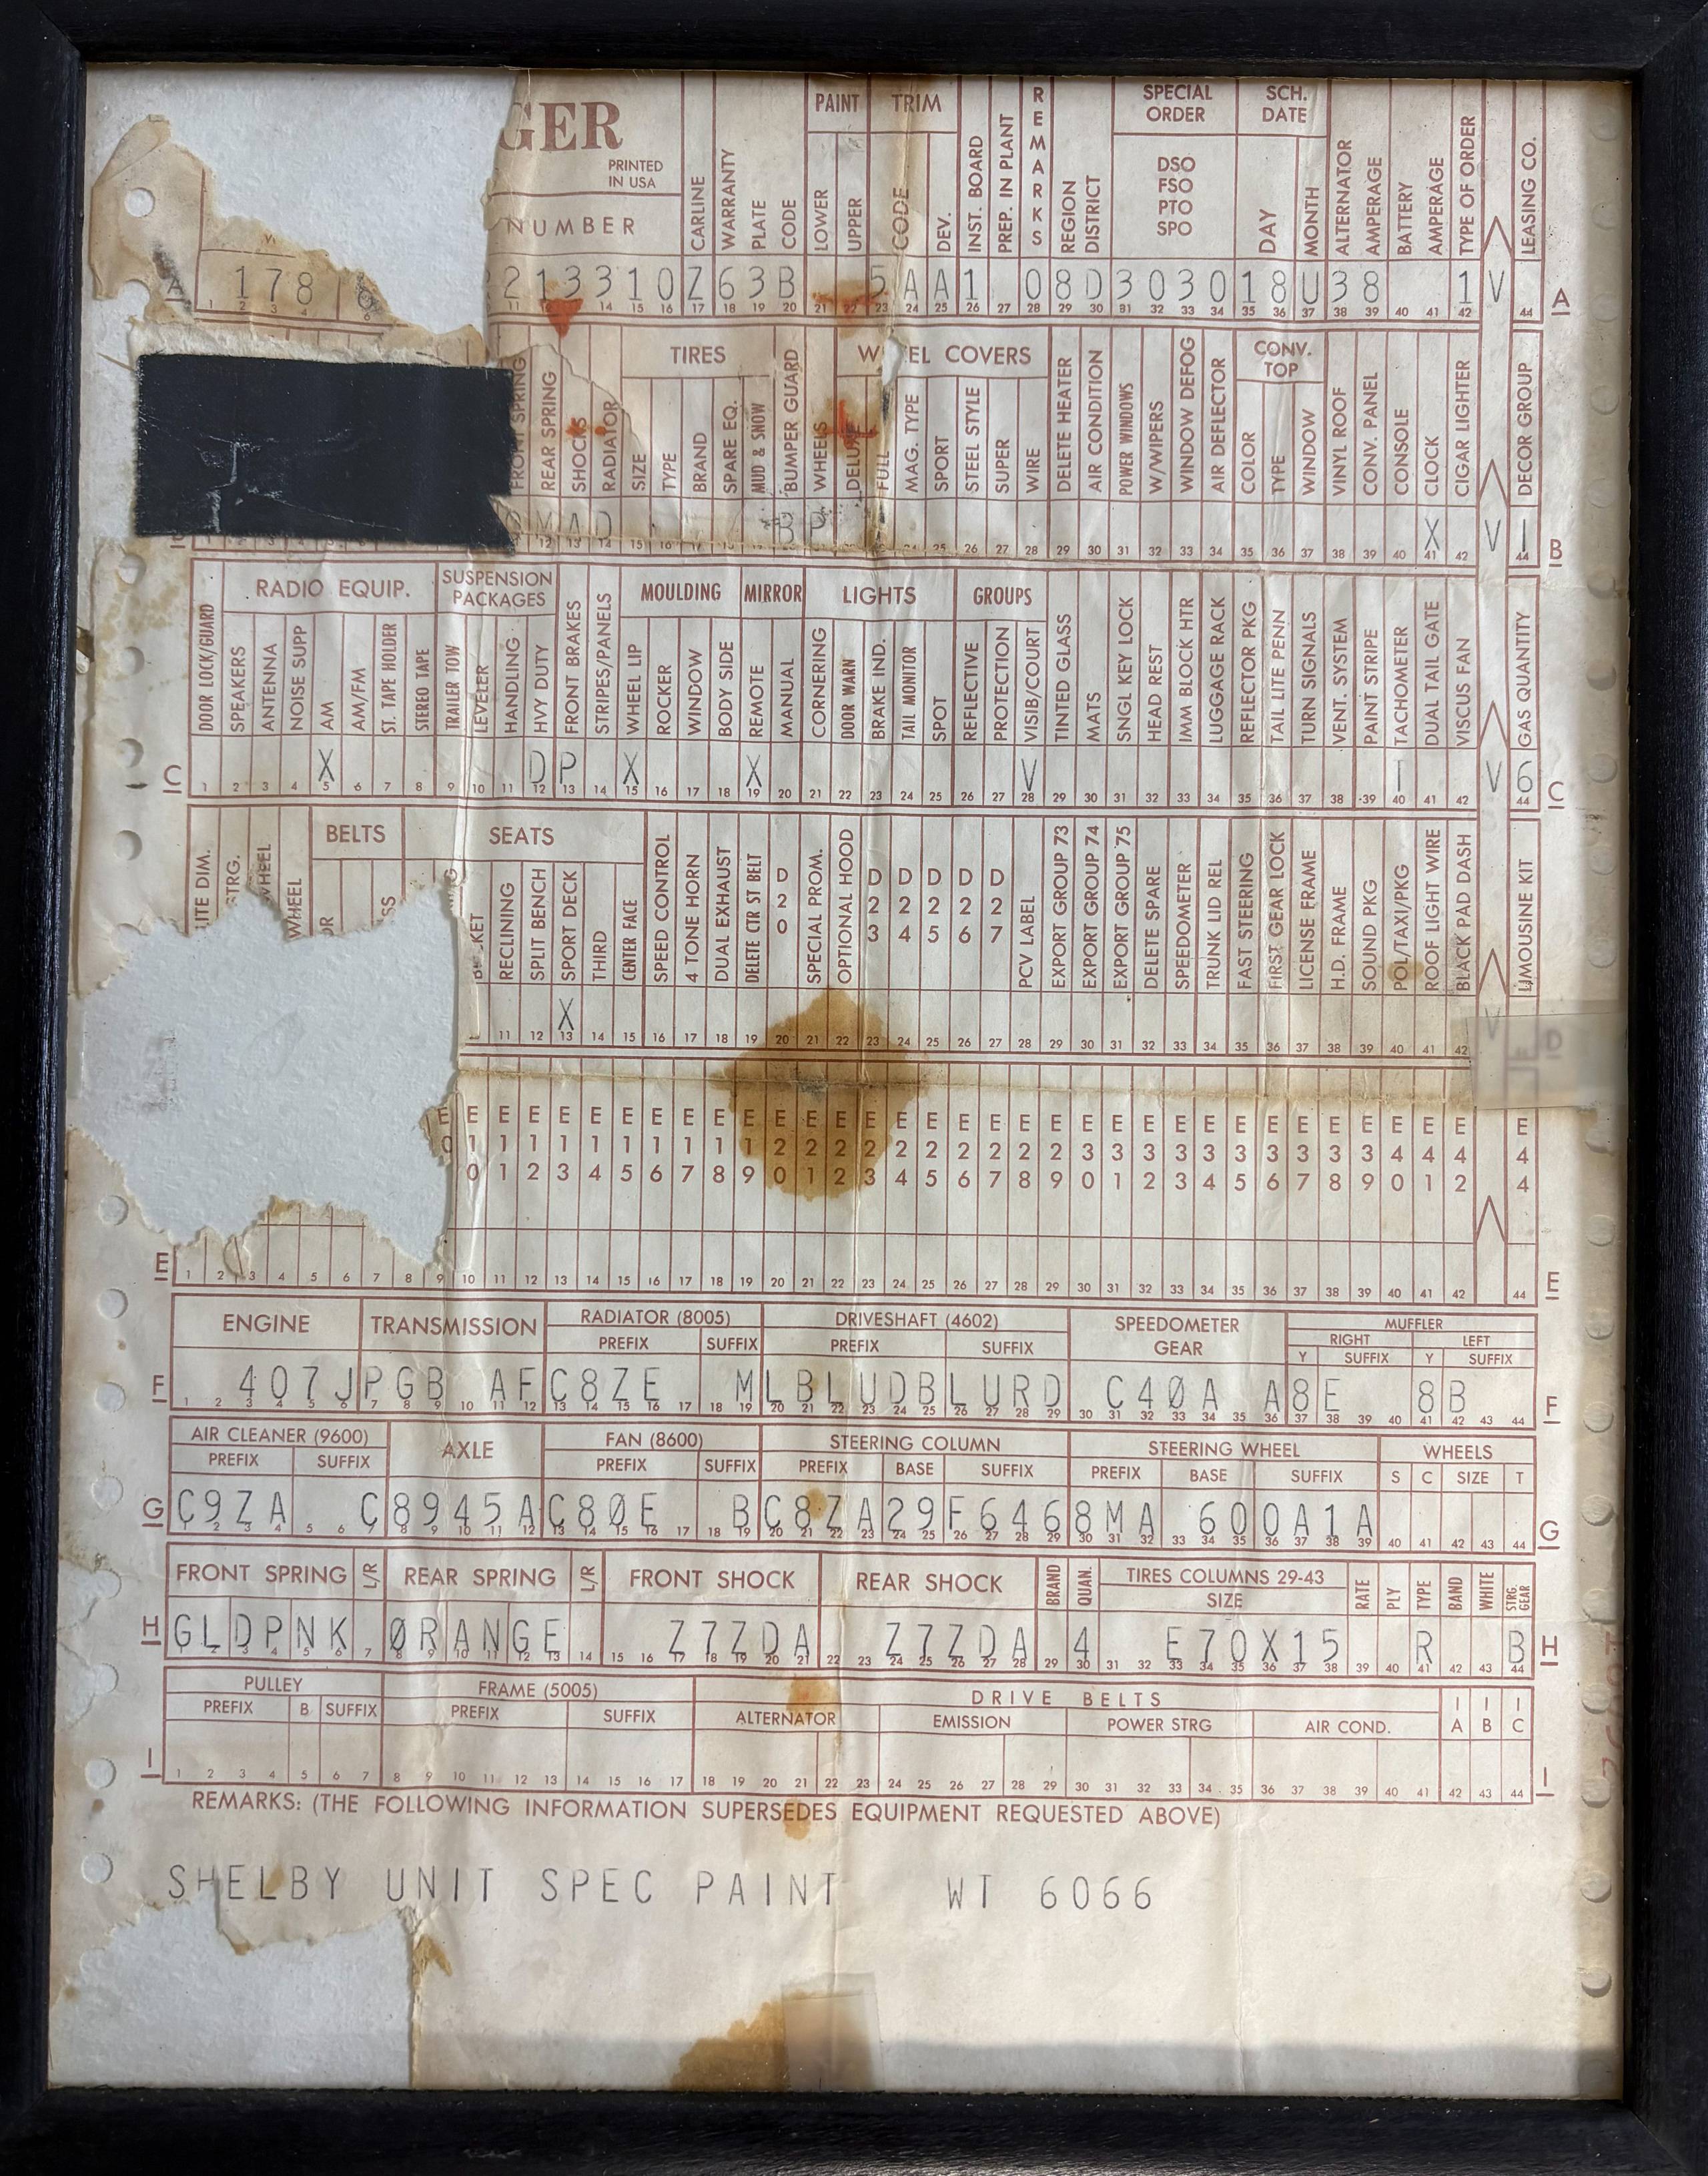 GER
PRINTED
IN USA
NUMBER
CARLINE
WARRANTY
PLATE
CODE
PAINT
LOWER
UPPER
TRIM
CODE
DEV.
INST. BOARD
PREP. IN PLANT
REMARKS
REGION
DISTRICT
SPECIAL
ORDER
DSO
FSO
PTO
SPO
SCH.
DATE
DAY
MONTH
ALTERNATOR
AMPERAGE
BATTERY
AMPERAGE
TYPE OF ORDER
LEASING CO.
A 178 213310Z63B 5AA1 08D303018U38 1 V A
FRONT SPRING
REAR SPRING
SHOCKS
RADIATOR
TIRES
SIZE
TYPE
BRAND
SPARE EQ.
MUD & SNOW
BUMPER GUARD
WHEELS
W EL COVERS
DELUXE
FULL
MAG. TYPE
SPORT
STEEL STYLE
SUPER
WIRE
DELETE HEATER
AIR CONDITION
POWER WINDOWS
W/WIPERS
WINDOW DEFOG
AIR DEFLECTOR
CONV.
TOP
COLOR
TYPE
WINDOW
VINYL ROOF
CONV. PANEL
CONSOLE
CLOCK
CIGAR LIGHTER
DECOR GROUP
MAD BP X V 1 B
DOOR LOCK/GUARD
RADIO EQUIP.
SPEAKERS
ANTENNA
NOISE SUPP
AM
AM/FM
ST. TAPE HOLDER
STEREO TAPE
SUSPENSION
PACKAGES
TRAILER TOW
LEVELER
HANDLING
HVY DUTY
FRONT BRAKES
STRIPES/PANELS
MOULDING
WHEEL LIP
ROCKER
WINDOW
BODY SIDE
MIRROR
REMOTE
MANUAL
LIGHTS
CORNERING
DOOR WARN
BRAKE IND.
TAIL MONITOR
SPOT
GROUPS
REFLECTIVE
PROTECTION
VISIB/COURT
TINTED GLASS
MATS
SNGL KEY LOCK
HEAD REST
IMM BLOCK HTR
LUGGAGE RACK
REFLECTOR PKG
TAIL LITE PENN
TURN SIGNALS
VENT. SYSTEM
PAINT STRIPE
TACHOMETER
DUAL TAIL GATE
VISCUS FAN
GAS QUANTITY
C X DP X X V 1 V 6 C
LITE DIM.
STRG.
WHEEL
WHEEL
BELTS
SEATS
RECLINING
SPLIT BENCH
SPORT DECK
THIRD
CENTER FACE
SPEED CONTROL
4 TONE HORN
DUAL EXHAUST
DELETE CTR ST BELT
D20
SPECIAL PROM.
OPTIONAL HOOD
D23
D24
D25
D26
D27
PCV LABEL
EXPORT GROUP 73
EXPORT GROUP 74
EXPORT GROUP 75
DELETE SPARE
SPEEDOMETER
TRUNK LID REL
FAST STEERING
FIRST GEAR LOCK
LICENSE FRAME
H.D. FRAME
SOUND PKG
POL/TAXI/PKG
ROOF LIGHT WIRE
BLACK PAD DASH
LIMOUSINE KIT
X V D
E10 E11 E12 E13 E14 E15 E16 E17 E18 E19 E20 E21 E22 E23 E24 E25 E26 E27 E28 E29 E30 E31 E32 E33 E34 E35 E36 E37 E38 E39 E40 E41 E42 E44
E 1 2 3 4 5 6 7 8 9 10 11 12 13 14 15 16 17 18 19 20 21 22 23 24 25 26 27 28 29 30 31 32 33 34 35 36 37 38 39 40 41 42 44 E
ENGINE TRANSMISSION RADIATOR (8005) DRIVESHAFT (4602) SPEEDOMETER GEAR MUFFLER
PREFIX SUFFIX PREFIX SUFFIX RIGHT LEFT
Y SUFFIX Y SUFFIX
F 407J PGB AF C8ZE M LBLUDBLURD C4ØA A 8E 8B F
AIR CLEANER (9600) AXLE FAN (8600) STEERING COLUMN STEERING WHEEL WHEELS
PREFIX SUFFIX PREFIX SUFFIX PREFIX BASE SUFFIX PREFIX BASE SUFFIX S C SIZE T
G C9ZA C 8945A C8ØE B C8ZA 29 F646 8MA 600A1A G
FRONT SPRING L/R REAR SPRING L/R FRONT SHOCK REAR SHOCK BRAND QUAN. TIRES COLUMNS 29-43
SIZE RATE PLY TYPE BAND WHITE STRG. GEAR
H GLDPNK ØRANGE Z7ZDA Z7ZDA 4 E70X15 R B H
PULLEY FRAME (5005) DRIVE BELTS
PREFIX B SUFFIX PREFIX SUFFIX ALTERNATOR EMISSION POWER STRG AIR COND. IA IB IC
I 1 2 3 4 5 6 7 8 9 10 11 12 13 14 15 16 17 18 19 20 21 22 23 24 25 26 27 28 29 30 31 32 33 34 35 36 37 38 39 40 41 42 43 44 I
REMARKS: (THE FOLLOWING INFORMATION SUPERSEDES EQUIPMENT REQUESTED ABOVE)
SHELBY UNIT SPEC PAINT WT 6066